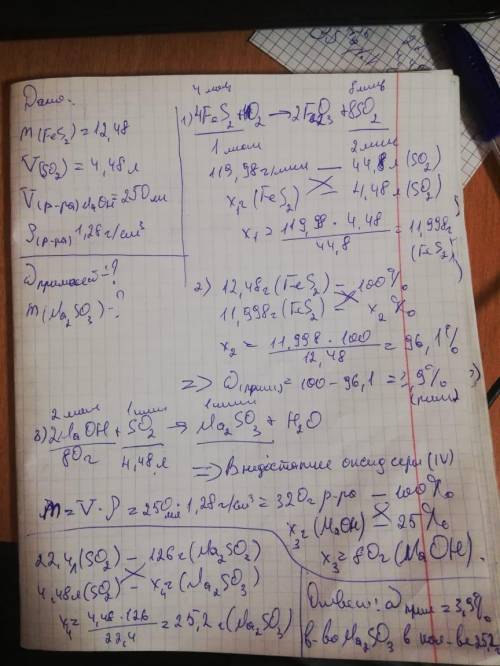 Дано:
m(FeS₂) = 12,48
V(SO₂) = 4,48 л
V(р-ра) NaOH = 250 мл
ρ(р-ра) 1,28 г/см³
ω примесей - ?
m(Na₂SO₃) - ?
4 моль 8 моль
1) 4FeS₂ + O₂ → 2Fe₂O₃ + 8SO₂
1 моль 2 моль
119,98 г/моль — 44,8 л (SO₂)
x₁ г (FeS₂) — 4,48 л (SO₂)
x₁ = 119,98 · 4,48 / 44,8 = 11,998 г (FeS₂)
2) 12,48 г (FeS₂) — 100%
11,998 г (FeS₂) — x₂ %
x₂ = 11,998 · 100 / 12,48 = 96,1%
=> ω(прим) = 100 - 96,1 = 3,9%
2 моль 1 моль 1 моль
3) 2NaOH + SO₂ → Na₂SO₃ + H₂O
80 г 4,48 л => В недостатке оксид серы (IV)
m = V · ρ = 250 мл · 1,28 г/см³ = 320 г р-ра — 100%
x₃ г (NaOH) — 25%
x₃ = 80 г (NaOH).
22,4 л (SO₂) — 126 г (Na₂SO₃)
4,48 л (SO₂) — x₄ г (Na₂SO₃)
x₄ = 4,48 · 126 / 22,4 = 25,2 г (Na₂SO₃)
Ответ: ω прим = 3,9%
в-во Na₂SO₃ в кол-ве 25,2